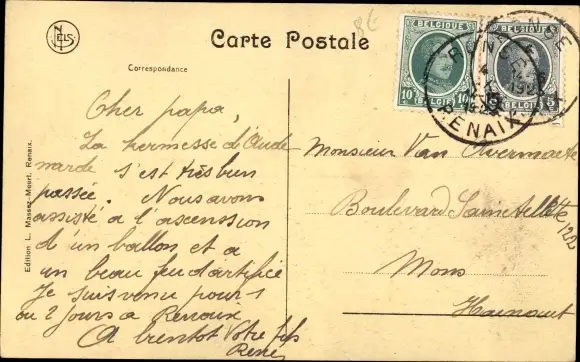 NELS
Carte Postale
Correspondance
BELGIQUE
10 10
(BELGIE)
BELGIQUE
5
(BELGIE)
RENAIX
Edition L. Massez-Meert, Renaix.
Cher papa,
La kermesse d'Aude
narde s'est très bien
passée. Nous avons
assisté à l'ascenssion
d'un ballon et a
un beau feu d'artifice
Je suis venu pour 1
ou 2 jours a Renaix
A bientot Votre fils
René
Monsieur Van Overmaete
Boulevard Sainctelette
Mons
Hainaut